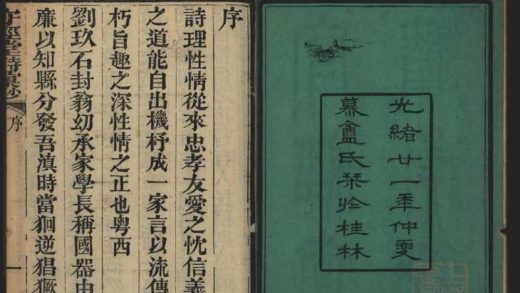 光緒廿一秊仲夏
慕盦氏栞於桂林
序
詩理性情從來忠孝友愛之忱信義
之道能自出機杼成一家言以流傳
朽旨趣之深性情之正也粤西
劉玖石封翁幼承家學長稱國器由
廉以知縣分發吾滇時當徊逆猖獗
序
一